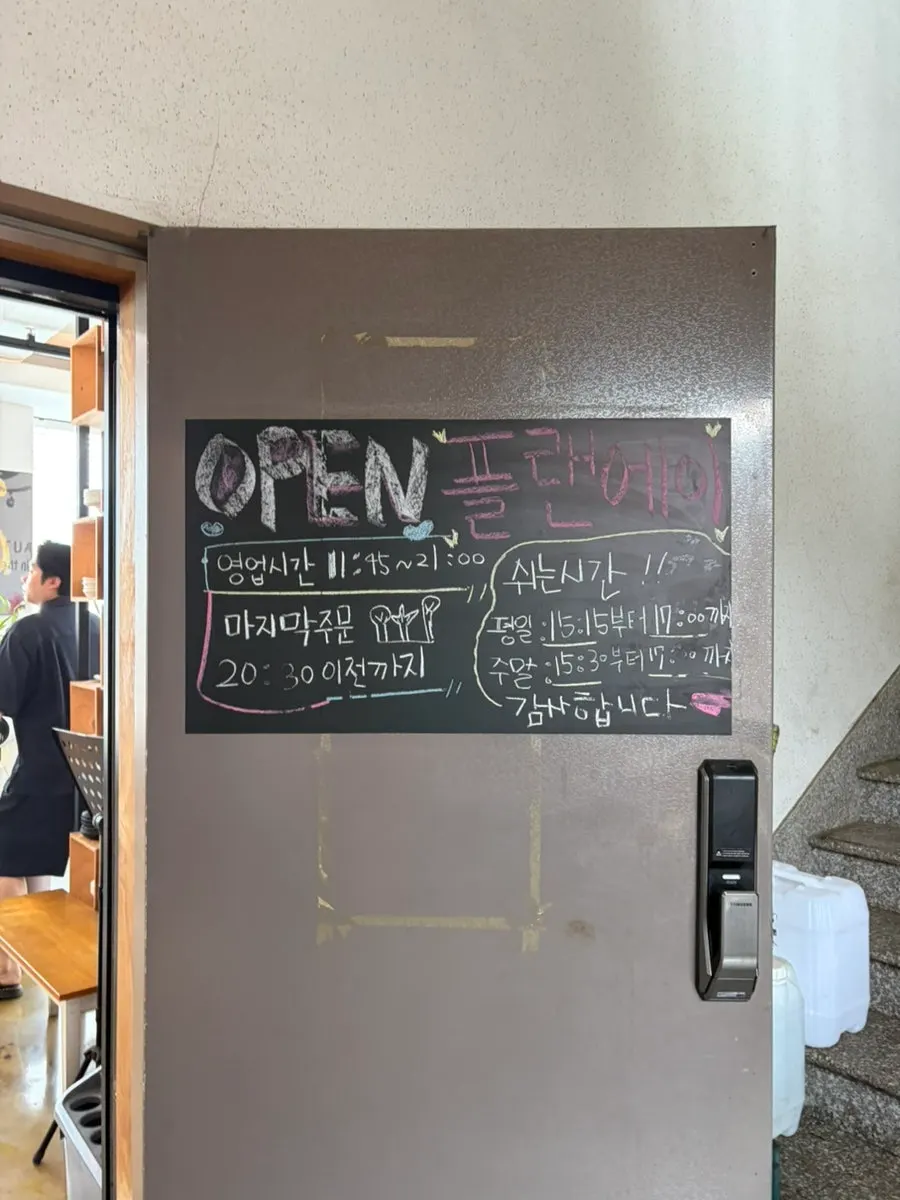 OPEN 플랜에이
영업시간 11:45~21:00
마지막주문
20:30이전까지
쉬는시간 !!
평일:15:15부터 17:00까지
주말:15:30부터 17:00까지
감사합니다
SAMSUNG